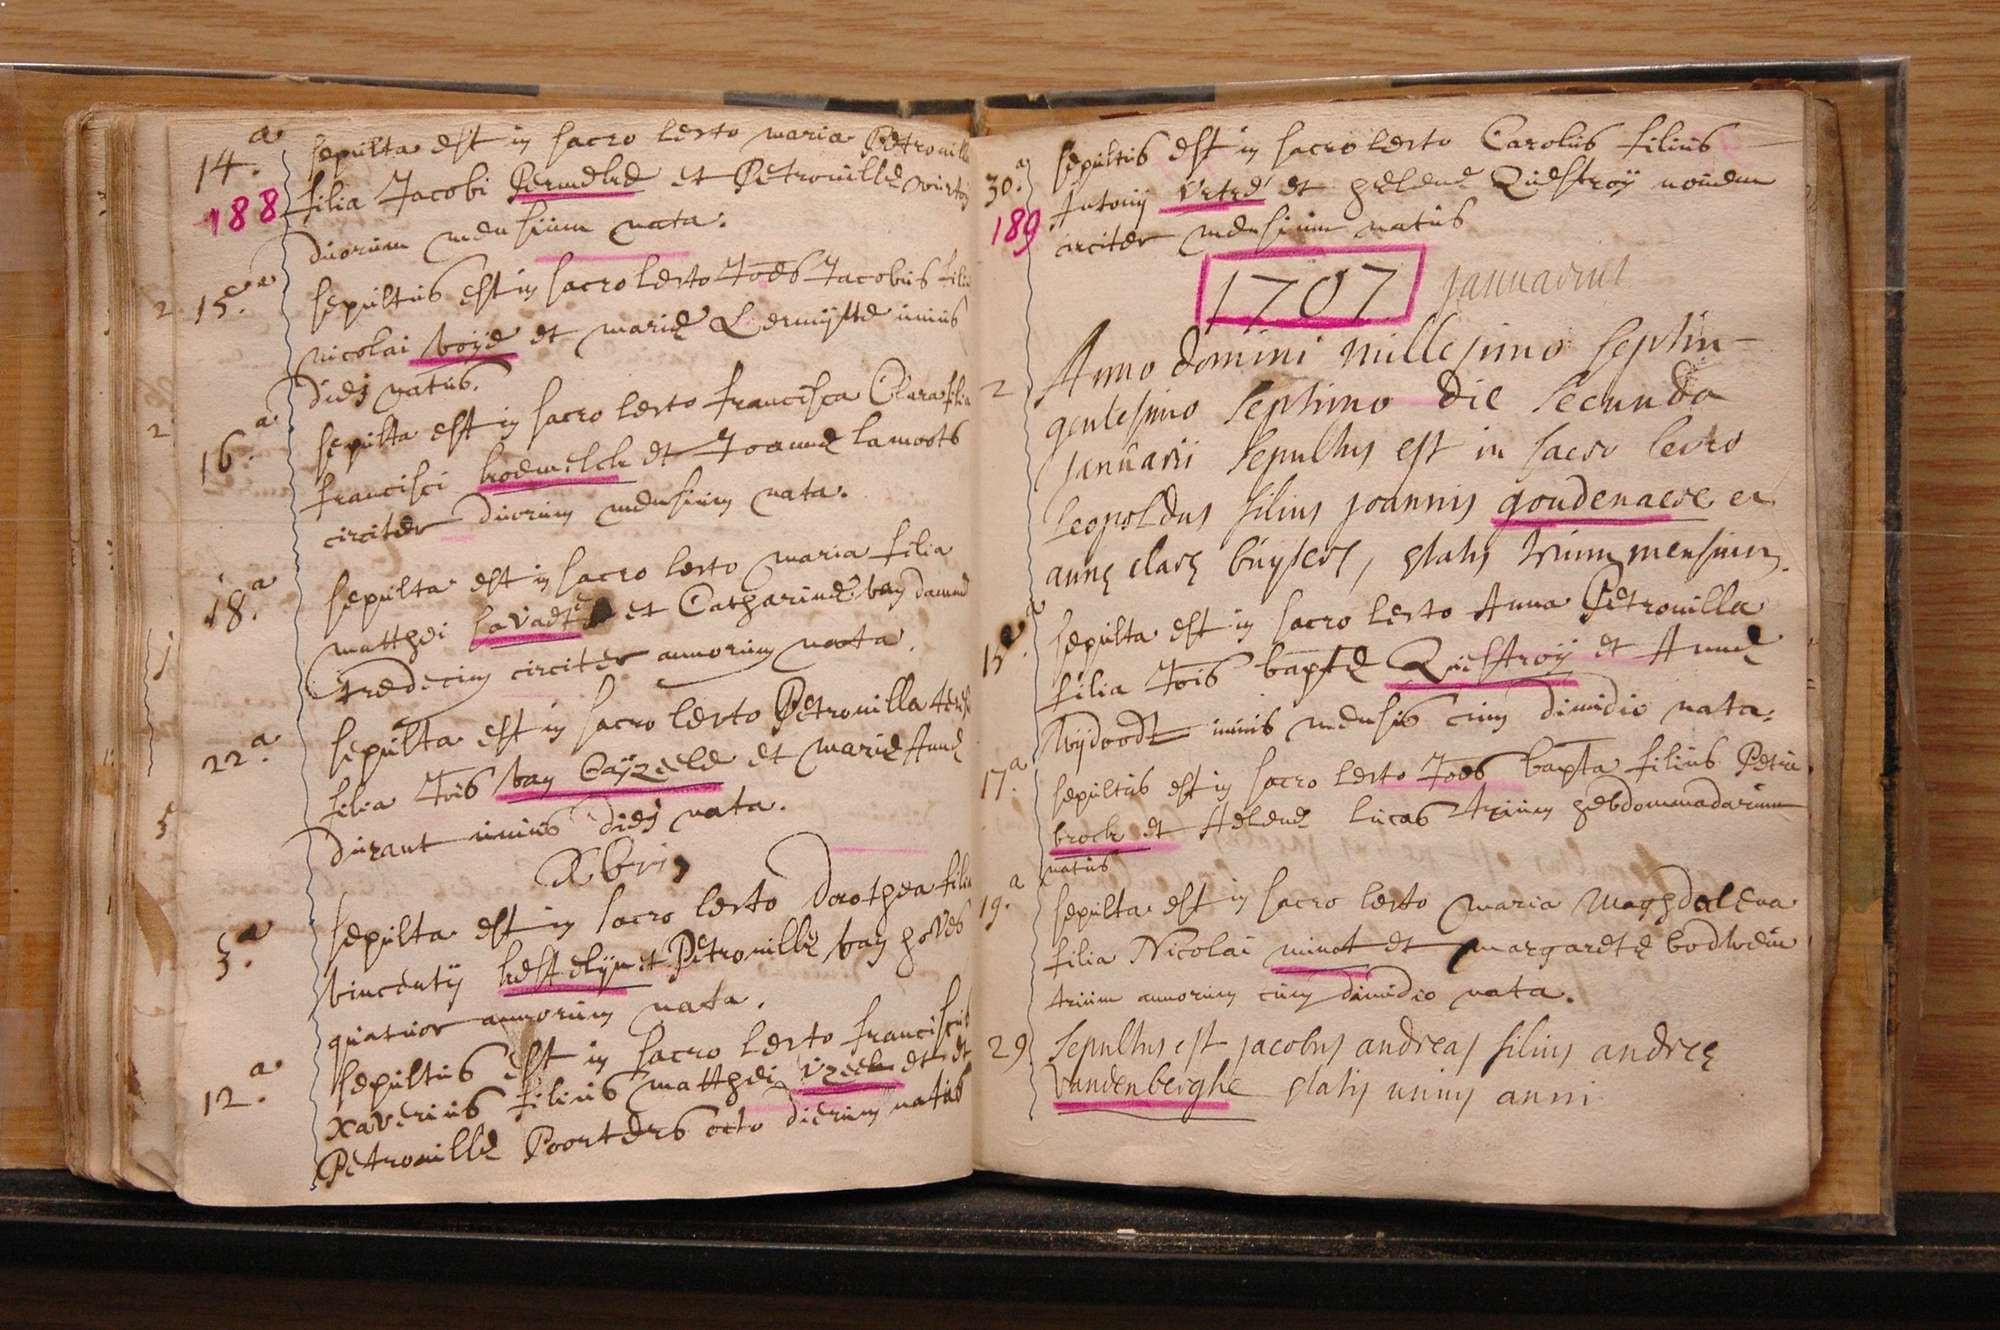 14.a sepulta est in sacro lecto maria Petronill
188 filia Jacobi Permeke et Petronillę
duorum mensium nata.
15.a sepultus est in sacro lecto Joes Jacobus filiu
nicolai boÿe et marię Lermÿtte unius
diej natus.
16.a sepulta est in sacro lecto francisca Clara filia
francisci et Joannę lamoots
circiter duorum mensium nata.
18.a sepulta est in sacro lecto maria filia
matthei savaete et Catharinę van damme
tredecim circiter annorum nata.
22.a sepulta est in sacro lecto Petronilla
filia Jois van Caÿzeele et marię Annę
durant unius diej nata.
Xbris
3.a sepulta est in sacro lecto dorothea filia
vincentij kestelÿn et Petronillę van hoves
quatuor annorum nata.
12.a sepultus est in sacro lecto franciscus
xaverius filius matthei et
Petronillę Poorters octo dierum natus
30.a sepultus est in sacro lecto Carolus filius
189 Antonij et helenę Questroÿ novem
circiter mensium natus
1707 Januarius
Anno domini millesimo septin-
2 gentesimo septimo die secunda
Januarii sepultus est in sacro lecto
leopoldus filius joannis goudenaere et
annę clarę buÿsere, ętatis trium mensium.
15.a sepulta est in sacro lecto Anna Petronilla
filia Jois baptę Questroÿ et Annę
Wÿdoodt unius mensis cum dimidio nata.
17.a sepultus est in sacro lecto Joes bapta filius Petri
brock et Helenę lucas trium hebdommadarum
natus
19.a sepulta est in sacro lecto maria Maghdalena
filia Nicolai minot et margaretę
trium annorum cum dimidio nata.
29 Sepultus est jacobus andreas filius andreę
vandenberghe ętatis unius anni